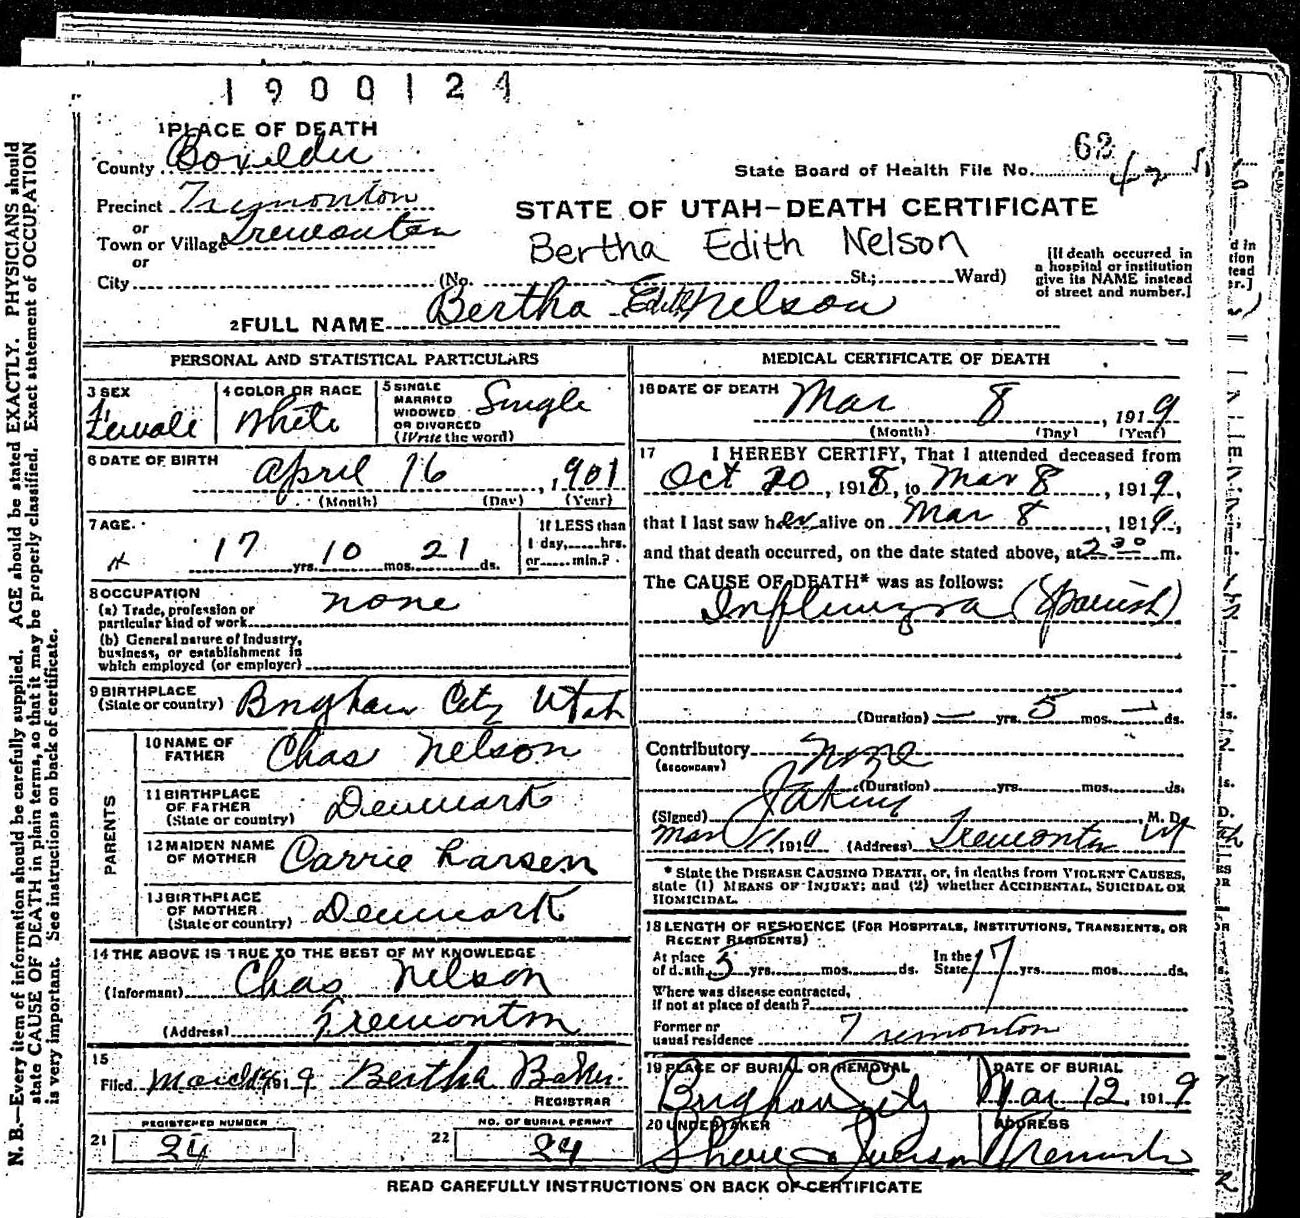 1900124
1 PLACE OF DEATH
County Boxelder
Precinct Tremonton
or
Town or Village Tremonton
or
City (No. St.; Ward)
State Board of Health File No. 62
42
STATE OF UTAH—DEATH CERTIFICATE
Bertha Edith Nelson
[If death occurred in a hospital or institution give its NAME instead of street and number.]
2 FULL NAME Bertha Edith Nelson
PERSONAL AND STATISTICAL PARTICULARS
3 SEX Female
4 COLOR OR RACE White
5 SINGLE MARRIED WIDOWED OR DIVORCED (Write the word) Single
6 DATE OF BIRTH April 16, 1901
(Month) (Day) (Year)
7 AGE. 17 yrs. 10 mos. 21 ds.
If LESS than 1 day, hrs. or min.?
8 OCCUPATION
(a) Trade, profession or particular kind of work none
(b) General nature of Industry, business, or establishment in which employed (or employer)
9 BIRTHPLACE (State or country) Brigham City Utah
PARENTS
10 NAME OF FATHER Chas Nelson
11 BIRTHPLACE OF FATHER (State or country) Denmark
12 MAIDEN NAME OF MOTHER Carrie Larsen
13 BIRTHPLACE OF MOTHER (State or country) Denmark
14 THE ABOVE IS TRUE TO THE BEST OF MY KNOWLEDGE
(Informant) Chas Nelson
(Address) Tremonton
15
Filed March 1919 Bertha Baker
REGISTRAR
21 REGISTERED NUMBER 24
22 NO. OF BURIAL PERMIT 24
MEDICAL CERTIFICATE OF DEATH
16 DATE OF DEATH Mar 8, 1919
(Month) (Day) (Year)
17 I HEREBY CERTIFY, That I attended deceased from
Oct 20, 1918, to Mar 8, 1919,
that I last saw her alive on Mar 8, 1919,
and that death occurred, on the date stated above, at 2 30 m.
The CAUSE OF DEATH* was as follows:
Influenza (Spanish)
(Duration) — yrs. 5 mos. — ds.
Contributory None
(SECONDARY)
(Duration) yrs. mos. ds.
(Signed) M. D.
Mar 191 (Address) Tremonton Ut
* State the DISEASE CAUSING DEATH, or, in deaths from VIOLENT CAUSES, state (1) MEANS OF INJURY; and (2) whether ACCIDENTAL, SUICIDAL OR HOMICIDAL.
18 LENGTH OF RESIDENCE (FOR HOSPITALS, INSTITUTIONS, TRANSIENTS, OR RECENT RESIDENTS)
At place of death 5 yrs. mos. ds. In the State 17 yrs. mos. ds.
Where was disease contracted, if not at place of death?
Former or usual residence Tremonton
19 PLACE OF BURIAL OR REMOVAL Brigham City
DATE OF BURIAL Mar 12 1919
20 UNDERTAKER
ADDRESS
READ CAREFULLY INSTRUCTIONS ON BACK OF CERTIFICATE
N. B.—Every item of information should be carefully supplied. AGE should be stated EXACTLY. PHYSICIANS should
state CAUSE OF DEATH in plain terms, so that it may be properly classified. Exact statement of OCCUPATION
is very important. See instructions on back of certificate.